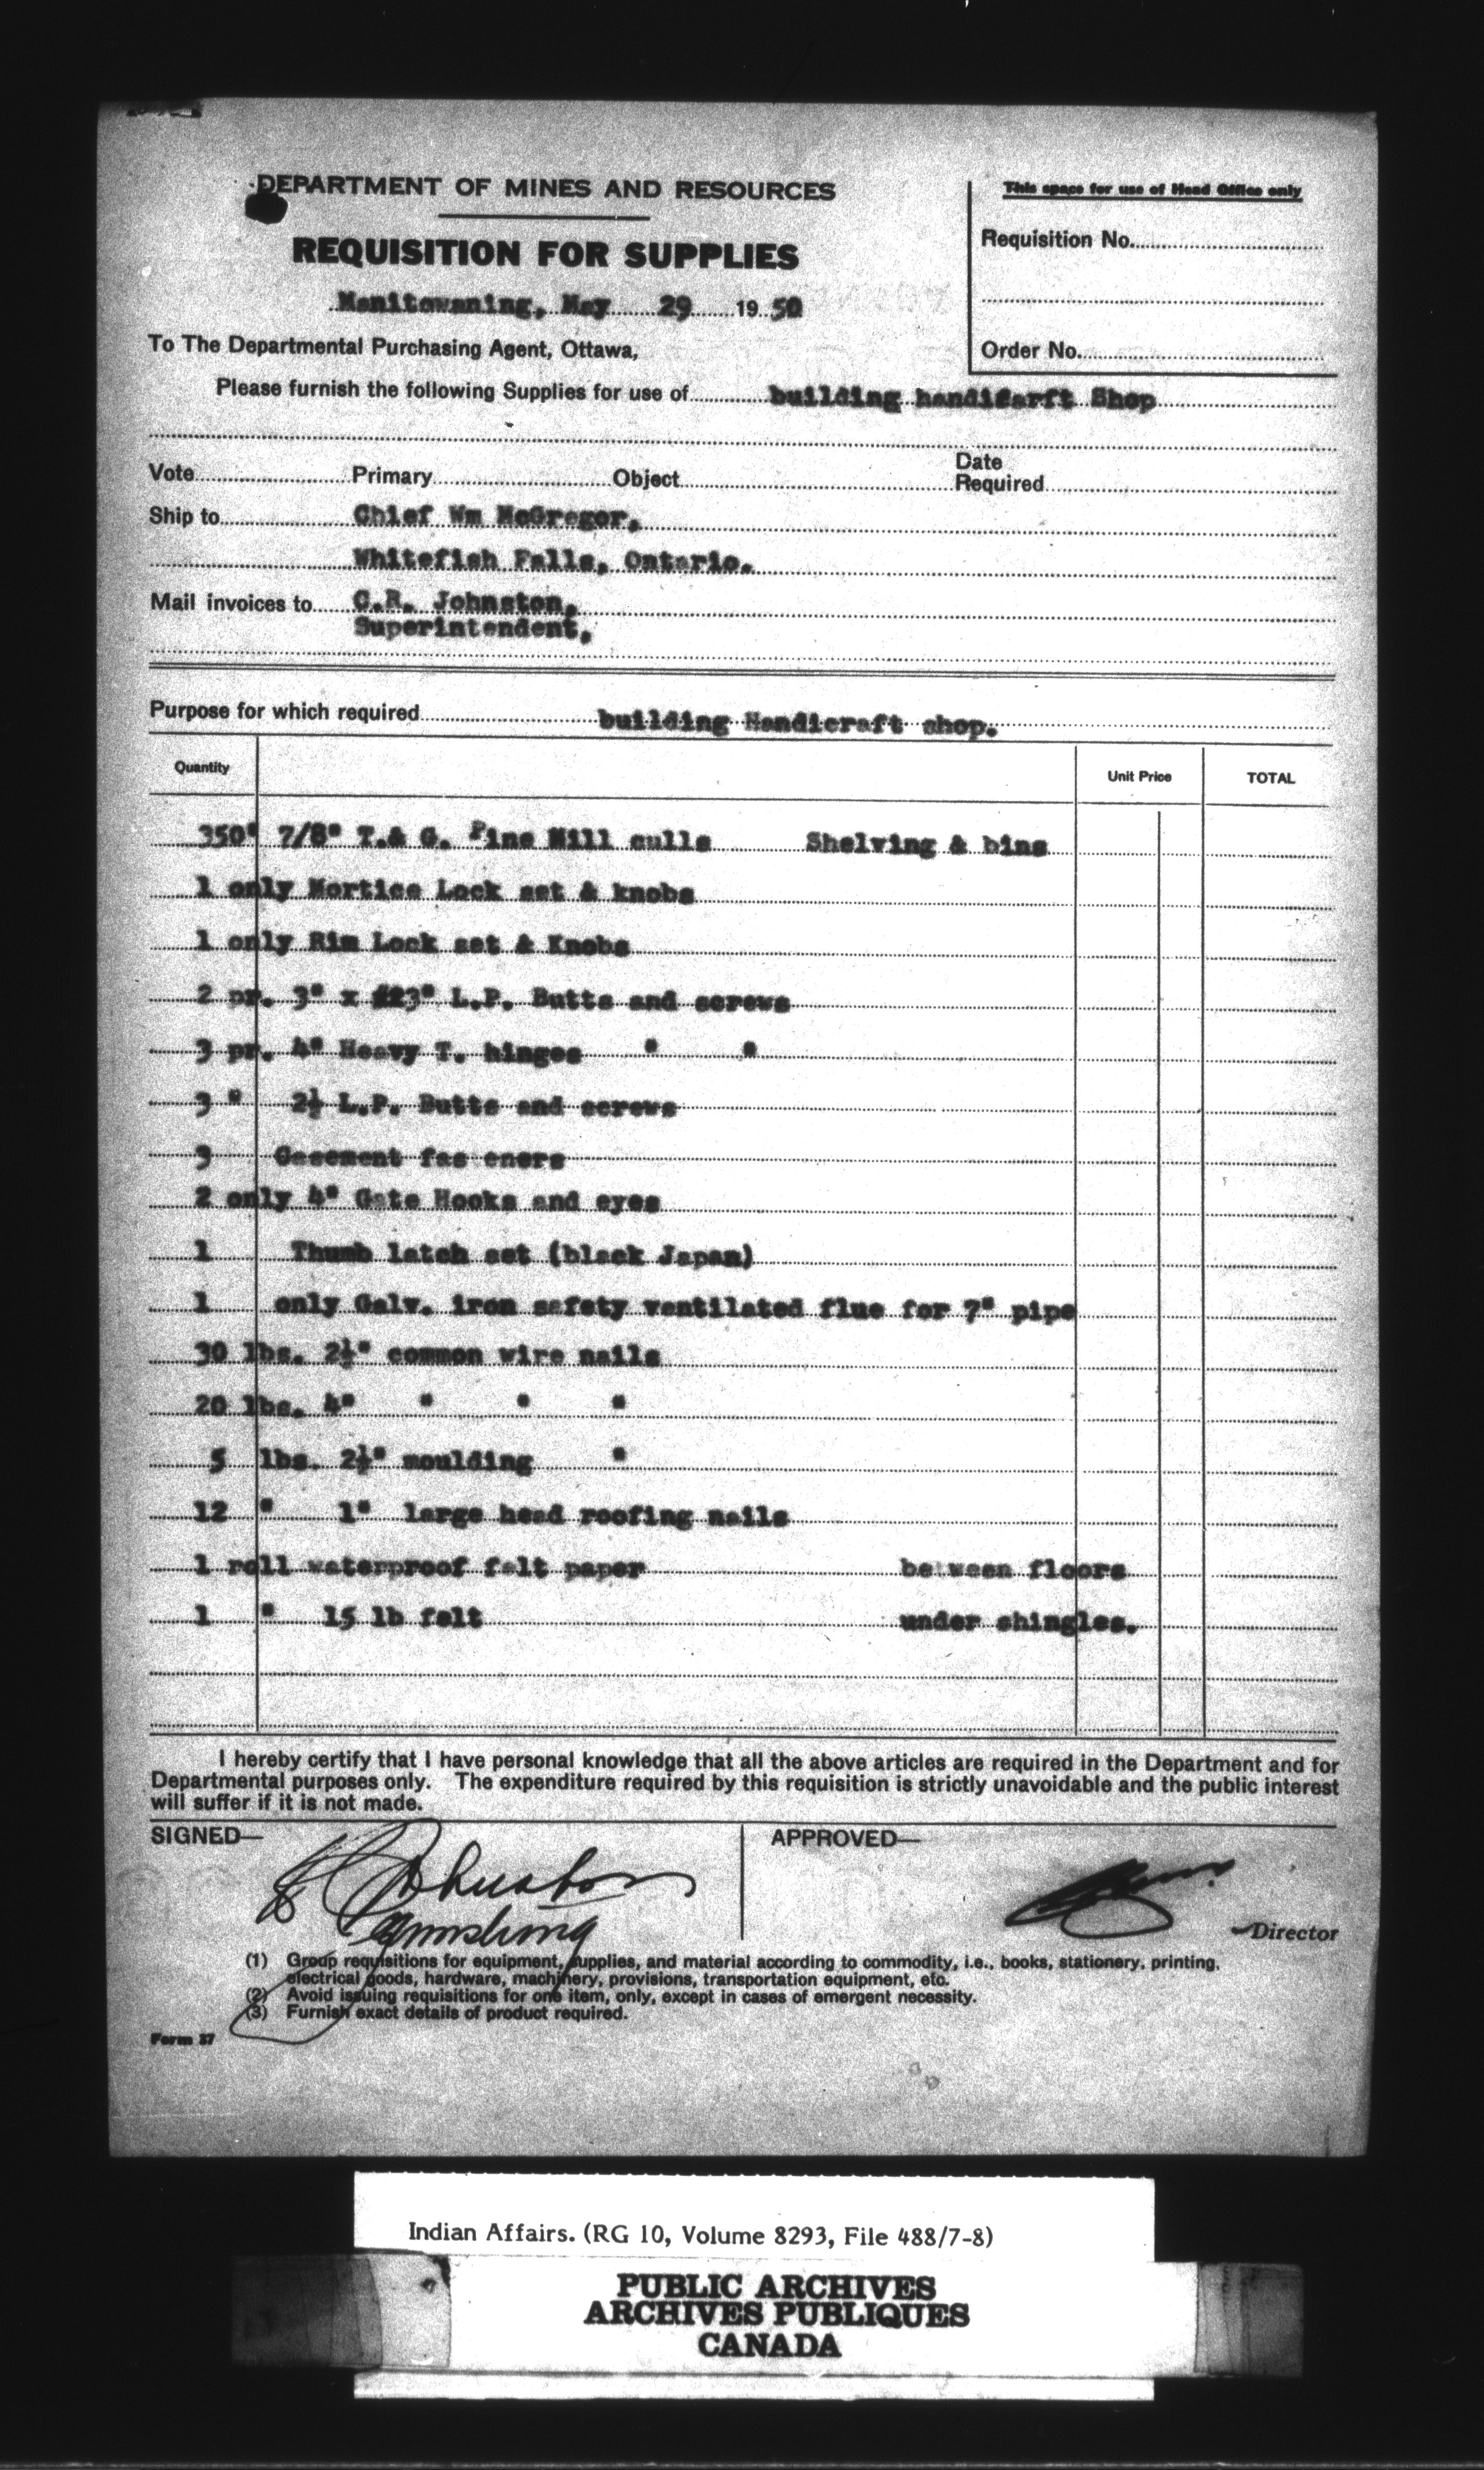 DEPARTMENT OF MINES AND RESOURCES
REQUISITION FOR SUPPLIES
Manitowaning, May 29 1950
This space for use of Head Office only
Requisition No.
Order No.
To The Departmental Purchasing Agent, Ottawa,
Please furnish the following Supplies for use of building handifarft Shop
Vote Primary Object Date Required
Ship to Chief Wm McGregor,
Whitefish Falls, Ontario.
Mail invoices to C.R. Johnston,
Superintendent,
Purpose for which required building Handicraft shop.
Quantity Unit Price TOTAL
350' 7/8" T.& G. Pine Mill culls Shelving & bins
1 only Mortice Lock set & knobs
1 only Rim Lock set & Knobs
2 pr. 3" x 3" L.P. Butts and screws
3 pr. 4" Heavy T. hinges " "
3 " 2½ L.P. Butts and screws
3 Casement fas eners
2 only 4" Gate Hooks and eyes
1 Thumb latch set (black Japan)
1 only Galv. iron safety ventilated flue for 7" pipe
30 lbs. 2½" common wire nails
20 lbs. 4" " " "
5 lbs. 2½" moulding "
12 " 1" large head roofing nails
1 roll waterproof felt paper between floors
1 " 15 lb felt under shingles.
I hereby certify that I have personal knowledge that all the above articles are required in the Department and for
Departmental purposes only. The expenditure required by this requisition is strictly unavoidable and the public interest
will suffer if it is not made.
SIGNED— APPROVED—
Johnston
Armstrong
Director
(1) Group requisitions for equipment, supplies, and material according to commodity, i.e., books, stationery, printing,
electrical goods, hardware, machinery, provisions, transportation equipment, etc.
(2) Avoid issuing requisitions for one item, only, except in cases of emergent necessity.
(3) Furnish exact details of product required.
Form 37
Indian Affairs. (RG 10, Volume 8293, File 488/7-8)
PUBLIC ARCHIVES
ARCHIVES PUBLIQUES
CANADA